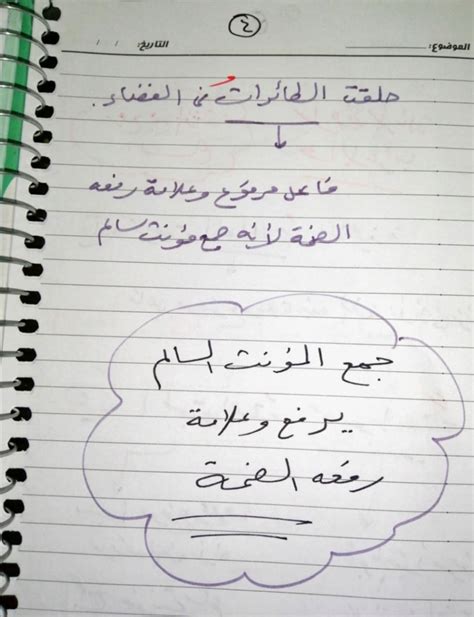 ٤
الموضوع: التاريخ: / /
حلقت الطائراتُ في الفضاء.
فاعل مرفوع وعلامة رفعه
الضمة لأنه جمع مؤنث سالم
جمع المؤنث السالم
يرفع وعلامة
رفعه الضمة